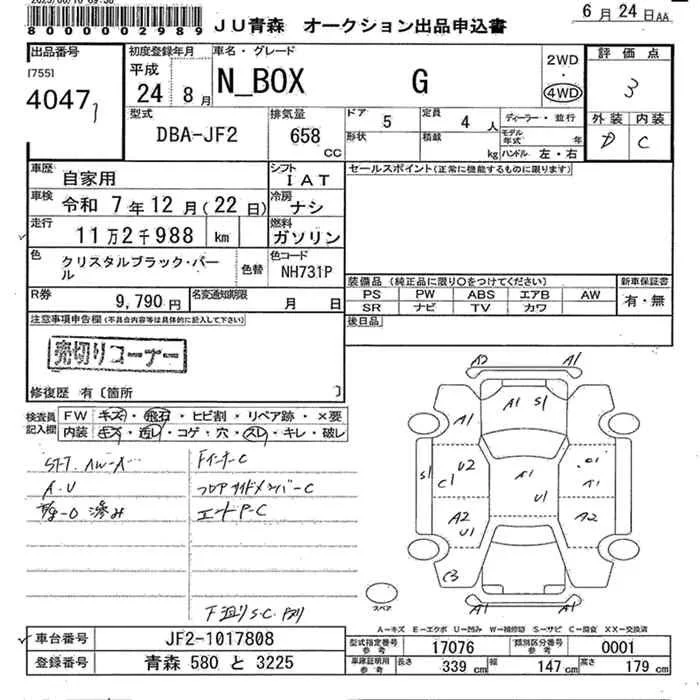 8000002989 JU青森 オークション出品申込書 6月24日AA
出品番号 初度登録年月 車名・グレード 2WD 評価点
(755) 平成 N_BOX G ・ 3
4047 24 8月 4WD 外装 内装
型式 排気量 ドア 5 定員 4 人 ディーラー・並行 D C
DBA-JF2 658 cc 形状 積載 kg モデル年式 年
ハンドル 左・右
車歴 自家用 シフト IAT セールスポイント(正常に機能するものに限ります)
車検 令和 7年12月(22日) 冷房 ナシ
走行 11万2千988 km 燃料 ガソリン
色 クリスタルブラック・パール 色替 色コード NH731P
装備品(純正品に限り○をつけてください) 新車保証書
R券 9,790円 名変通知期限 月 日 PS PW ABS エアB AW 有・無
SR ナビ TV カワ
注意事項申告欄(不具合内容等は具体的に記入して下さい) 後日品
売切りコーナー
修復歴 有〔箇所 〕
検査員記入欄 FW キズ・飛石・ヒビ割・リペア跡・×要
内装 キズ・汚レ・コゲ・穴・スレ・キレ・破レ
A2 A1
A1 S1
A1 A1
S1 U2 C1 A1 U1 A1
A2 U1 A2
C3
A1 A1
FインナーC
フロアサイドメンバーC
エンドP-C
スペア
A-キズ E-エクボ U-凹み W-補修跡 S-サビ C-腐食 XX-交換済
車台番号 JF2-1017808 型式指定番号 参考 17076 類別区分番号 参考 0001
登録番号 青森 580 と 3225 車庫証明用 参考 長さ 339cm 幅 147cm 高さ 179cm